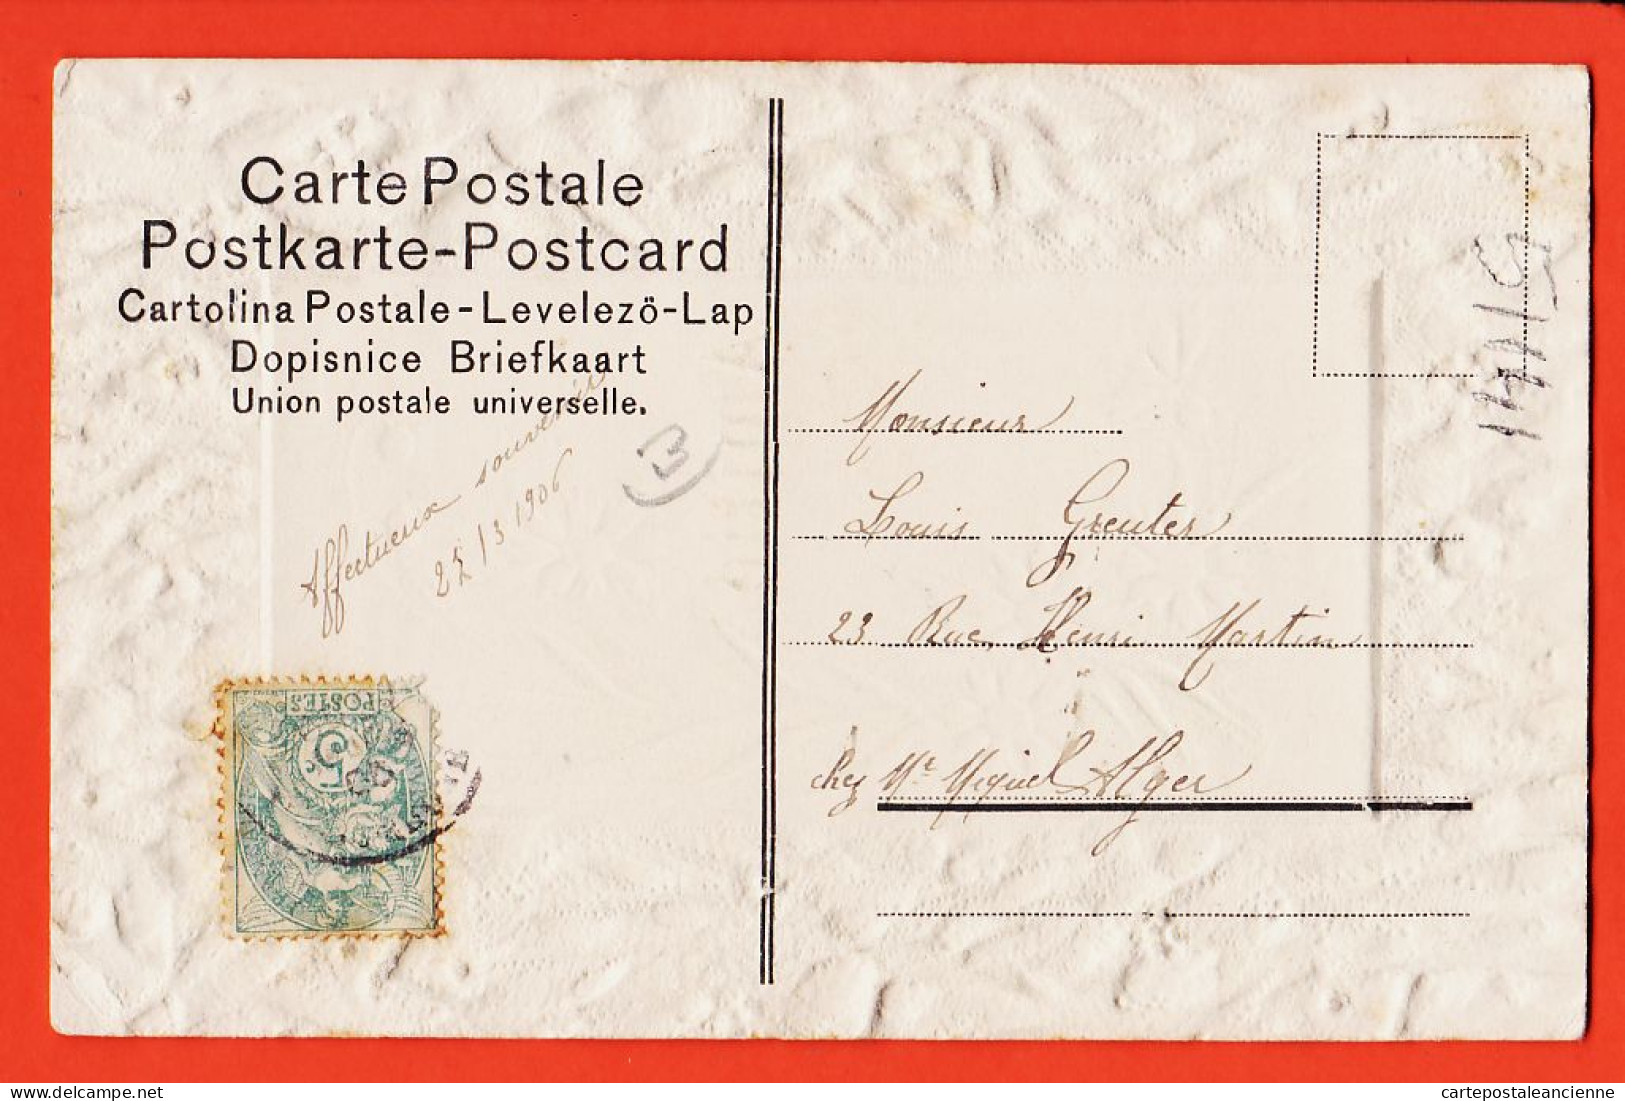 Carte Postale
Postkarte-Postcard
Cartolina Postale-Levelező-Lap
Dopisnice Briefkaart
Union postale universelle.
Affectueux souvenir
25/3 1906
B
Monsieur
Louis Greuter
23 Rue Henri Martin
chez Mr Miquel Alger
POSTES
5c
delcampe.net
cartepostaleancienne